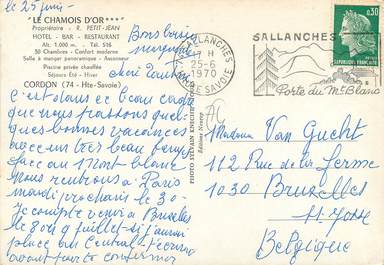 le 25 juin -
"LE CHAMOIS D'OR****"
Propriétaire - R. PETIT-JEAN
HOTEL - BAR - RESTAURANT
Alt. 1.000 m. - Tél. 516
50 Chambres - Confort moderne
Salle à manger panoramique - Ascenseur
Piscine privée chauffée
Séjours Eté - Hiver
CORDON (74 - Hte-Savoie)
C'est dans ce beau
que nous passons quel-
ques bonnes vacances
avec un très beau temps
face au Mont Blanc
Nous rentrons à Paris
mardi prochain le 30 -
Je compte venir à Bruxelles
le 8 ou 9 juillet si j'aurai
place au Central
avant pour te confirmer
PHOTO SYLVAIN KNECHT
Editions
SALLANCHES
17 H
25-6
1970
HAUTE SAVOIE
0,30
REPUBLIQUE FRANÇAISE
SALLANCHES
Porte du Mt Blanc
Madame Van Gucht
112 Rue de la Ferme
1030 Bruxelles
St-Josse
Belgique